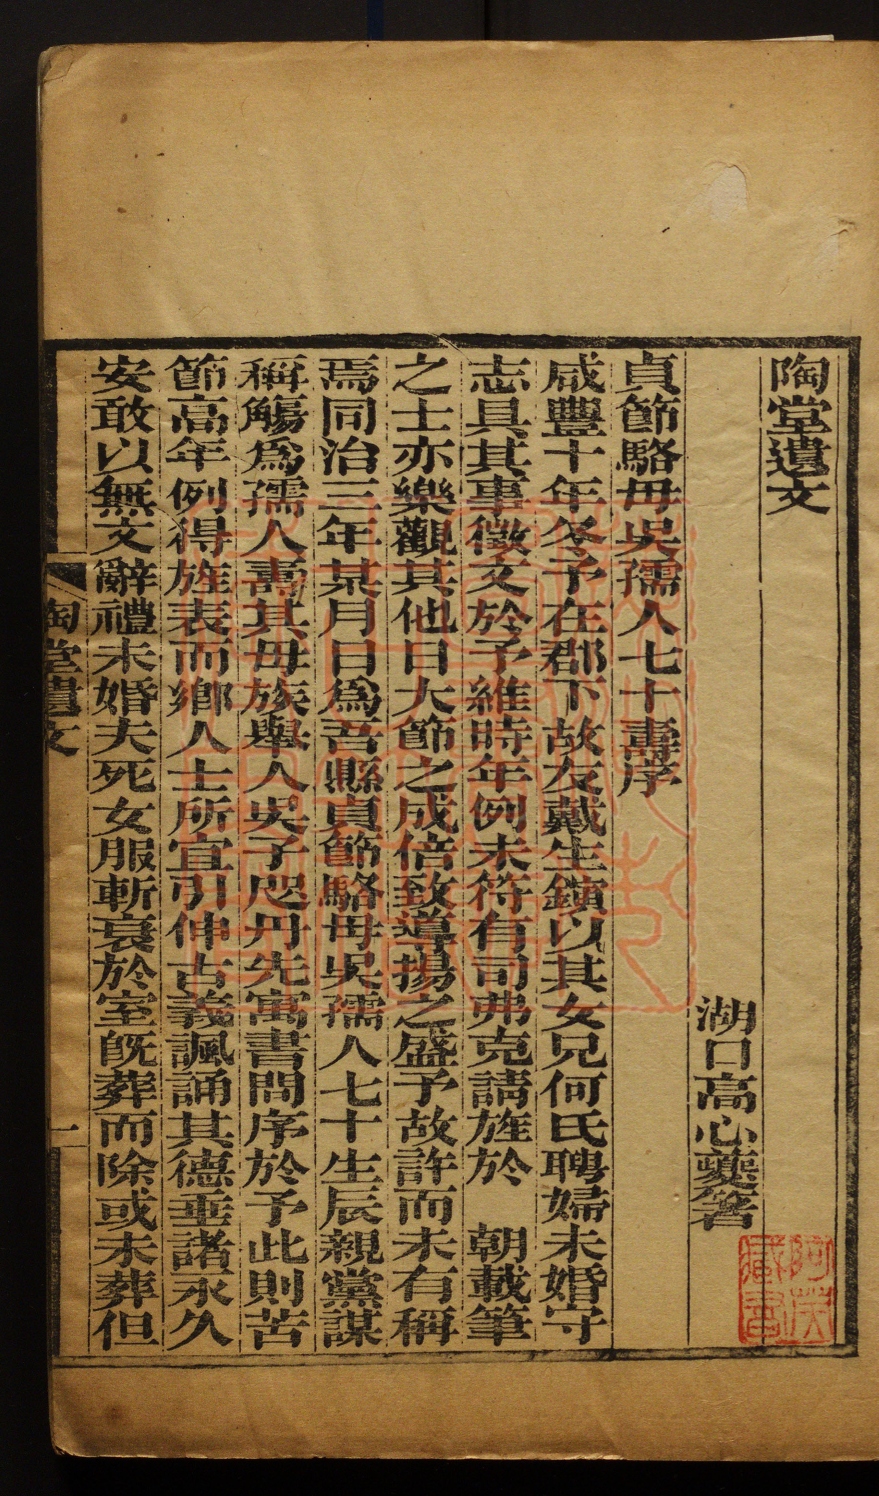 陶堂遺文
湖口高心夔箸
貞節駱母吳孺人七十壽序
咸豐十年冬予在郡下故友戴生鎮以其女兄何氏聘婦未婚守
志具其事徵文於予維時年例未符有司弗克請旌於　朝載筆
之士亦樂觀其他日大節之成倍致導揚之盛予故許而未有稱
焉同治三年某月日爲吾縣貞節駱母吳孺人七十生辰親黨謀
稱觴爲孺人壽其母族舉人吳子咫丹先寓書問序於予此則苦
節高年例得旌表而鄉人士所宜引伸古義諷誦其德垂諸永久
安敢以無文辭禮未婚夫死女服斬衰於室旣葬而除或未葬但
陶堂遺文
一
阿英
藏書